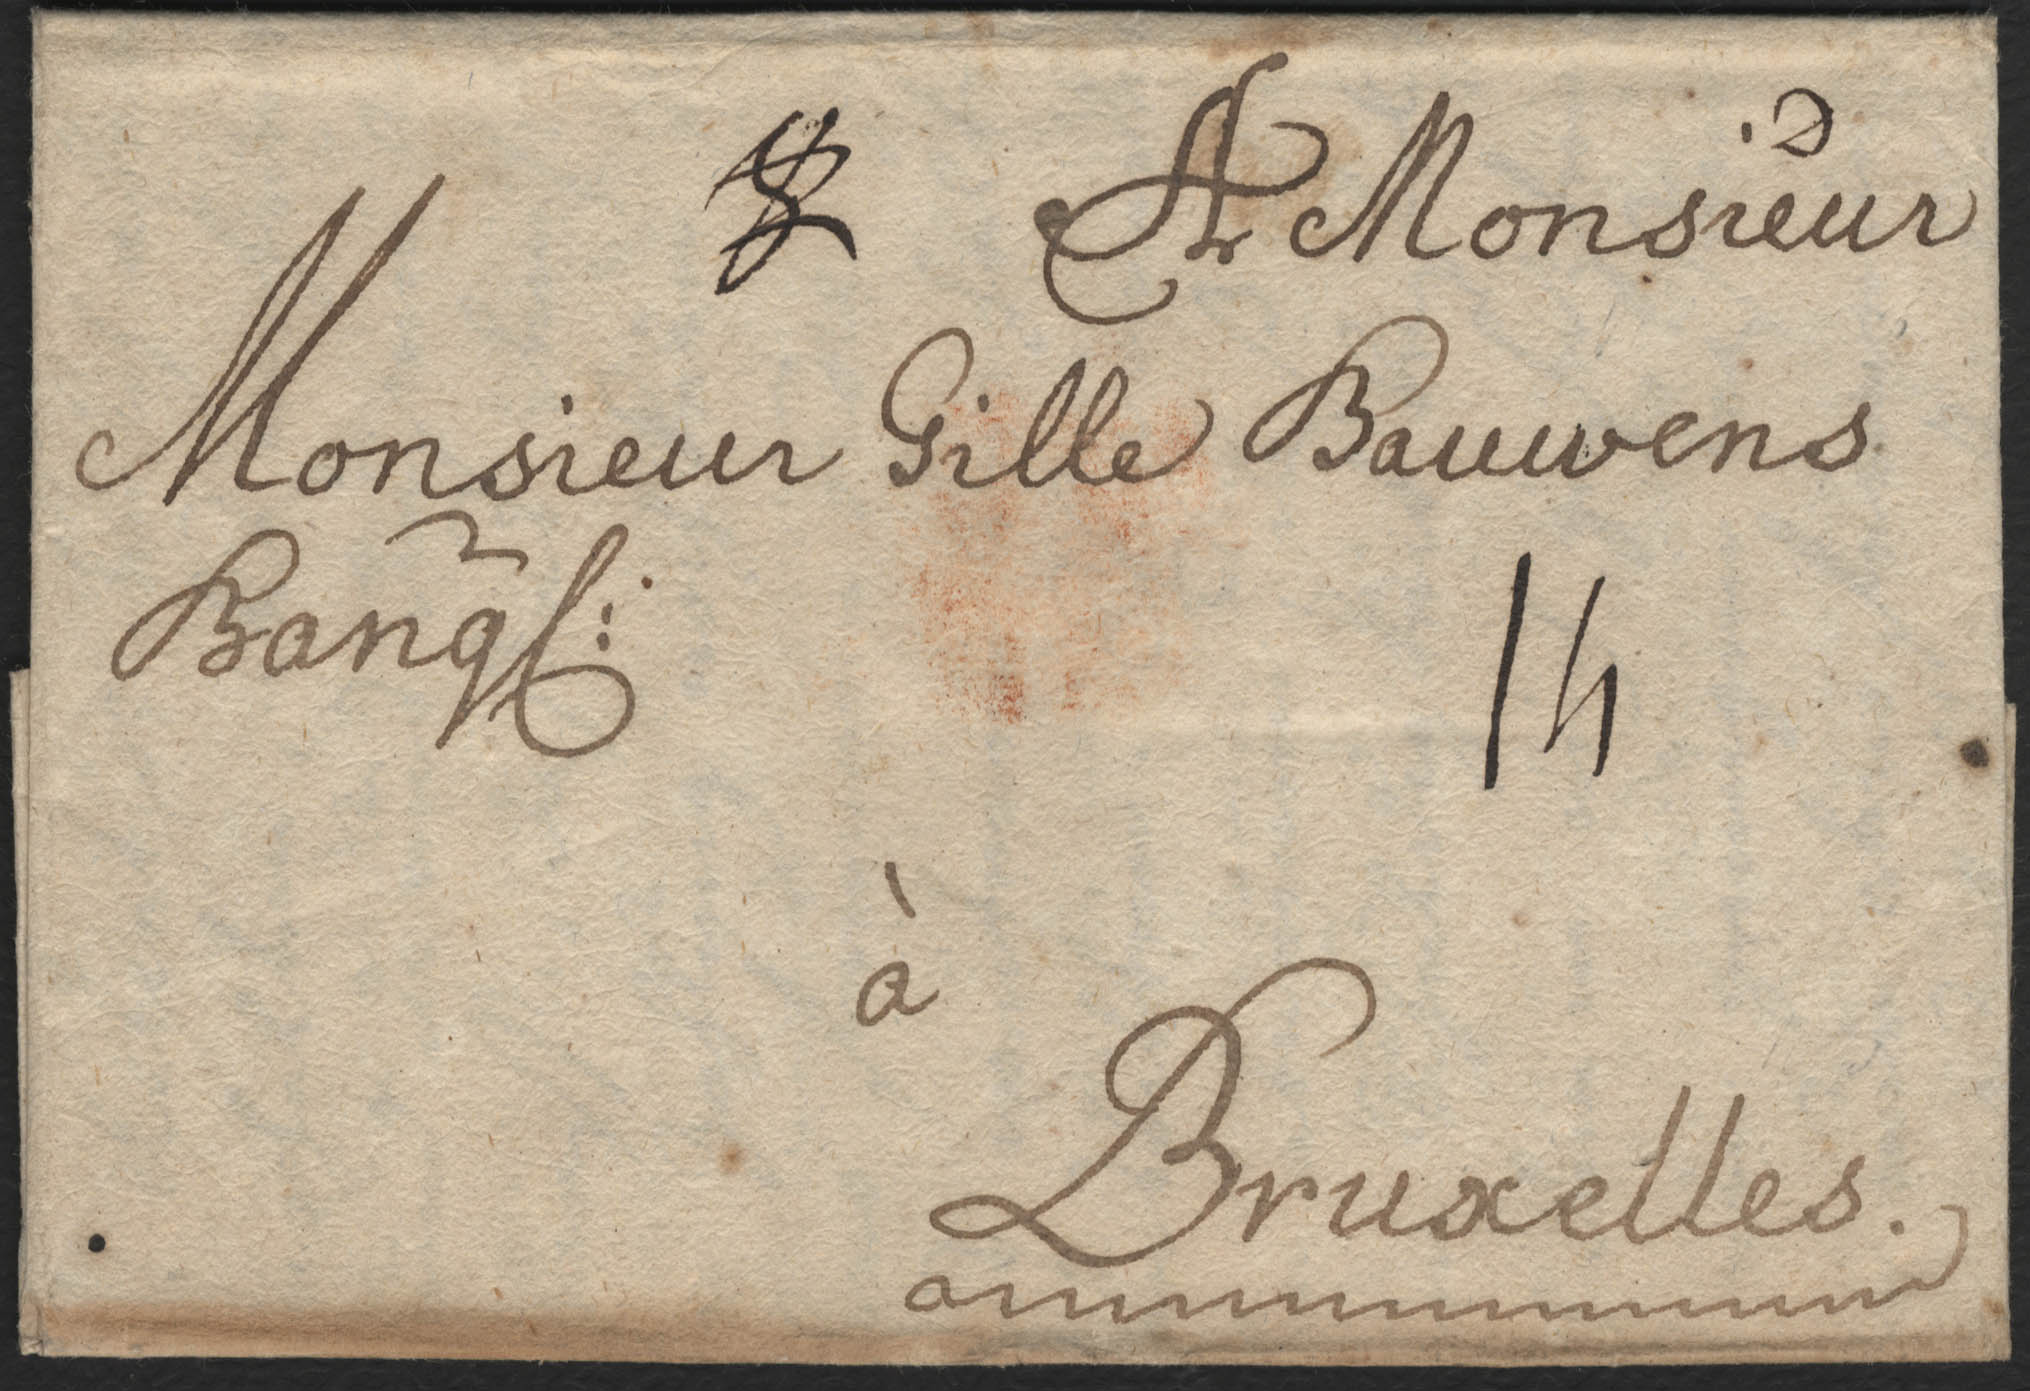 A Monsieur
Monsieur Gille Bauwens
à
Bruxelles.